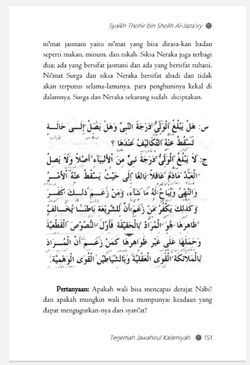 Syaikh Thohir bin Sholih Al-Jaza'iry
ni'mat jasmani yaitu ni'mat yang bisa dirasa-kan badan
seperti makan, minum, dan nikah. Siksa Neraka juga terbagi
dua; ada yang bersifat jasmani dan ada yang bersifat ruhani.
Ni'mat Surga dan siksa Neraka bersifat abadi dan tidak
akan terputus selama-lamanya, para penghuninya kekal di
dalamnya. Surga dan Neraka sekarang sudah diciptakan.
س: هَلْ يَبْلُغُ الْوَلِيُّ دَرَجَةَ النَّبِيِّ وَهَلْ يَصِلُ إِلَى حَالَةٍ
تَسْقُطُ عَنْهُ التَّكَالِيفُ عِنْدَهَا؟
ج: لَا يَبْلُغُ الْوَلِيُّ دَرَجَةَ نَبِيٍّ مِنَ الْأَنْبِيَاءِ أَصْلًا وَلَا يَصِلُ
الْعَبْدُ مَادَامَ عَاقِلًا بَالِغًا إِلَى حَيْثُ يَسْقُطُ عَنْهُ الْأَمْرُ
وَالنَّهْيُ وَيُبَاحُ لَهُ مَا شَاءَ، وَمَنْ زَعَمَ ذٰلِكَ كَفَرَ
وَكَذٰلِكَ يَكْفُرُ مَنْ زَعَمَ أَنَّ لِلشَّرِيْعَةِ بَاطِنًا يُخَالِفُ
ظَاهِرَهَا هُوَ الْمُرَادُ بِالْحَقِيْقَةِ فَأَوَّلَ النُّصُوْصَ الْقَطْعِيَّةَ
وَحَمَلَهَا عَلَى غَيْرِ ظَوَاهِرِهَا كَمَنْ زَعَمَ أَنَّ الْمُرَادَ
بِالْمَلَائِكَةِ الْقُوَى الْعَقْلِيَّةُ وَبِالشَّيَاطِيْنِ الْقُوَى الْوَهْمِيَّةُ.
Pertanyaan: Apakah wali bisa mencapai derajat Nabi?
dan apakah mungkin wali bisa mempunyai keadaan yang
dapat mengugurkan-nya dari syari'at?
Terjemah Jawahirul Kalamiyah 151